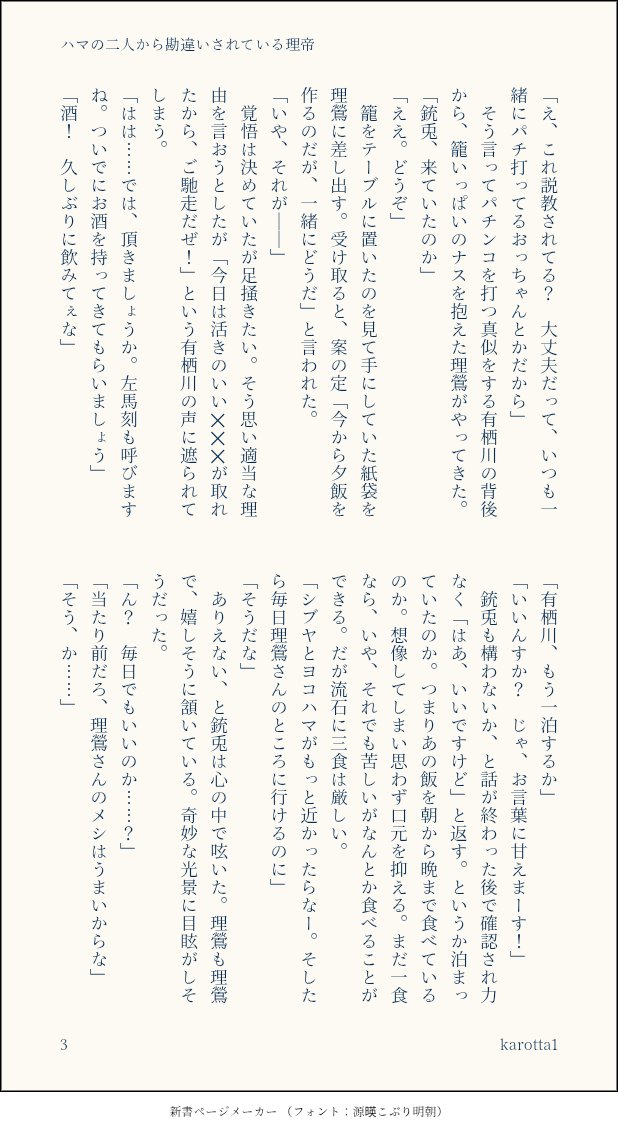 ハマの二人から勘違いされている理帝
「え、これ説教されてる？　大丈夫だって、いつも一
緒にパチ打ってるおっちゃんとかだから」
　そう言ってパチンコを打つ真似をする有栖川の背後
から、籠いっぱいのナスを抱えた理鶯がやってきた。
「銃兎、来ていたのか」
「ええ。どうぞ」
　籠をテーブルに置いたのを見て手にしていた紙袋を
理鶯に差し出す。受け取ると、案の定「今から夕飯を
作るのだが、一緒にどうだ」と言われた。
「いや、それが――」
　覚悟は決めていたが足掻きたい。そう思い適当な理
由を言おうとしたが「今日は活きのいい×××が取れ
たから、ご馳走だぜ！」という有栖川の声に遮られて
しまう。
「はは……では、頂きましょうか。左馬刻も呼びます
ね。ついでにお酒を持ってきてもらいましょう」
「酒！　久しぶりに飲みてぇな」
「有栖川、もう一泊するか」
「いいんすか？　じゃ、お言葉に甘えまーす！」
　銃兎も構わないか、と話が終わった後で確認され力
なく「はあ、いいですけど」と返す。というか泊まっ
ていたのか。つまりあの飯を朝から晩まで食べている
のか。想像してしまい思わず口元を抑える。まだ一食
なら、いや、それでも苦しいがなんとか食べることが
できる。だが流石に三食は厳しい。
「シブヤとヨコハマがもっと近かったらなー。そした
ら毎日理鶯さんのところに行けるのに」
「そうだな」
　ありえない、と銃兎は心の中で呟いた。理鶯も理鶯
で、嬉しそうに頷いている。奇妙な光景に目眩がしそ
うだった。
「ん？　毎日でもいいのか……？」
「当たり前だろ、理鶯さんのメシはうまいからな」
「そう、か……」
3
karotta1
新書ページメーカー （フォント：源暎こぶり明朝）